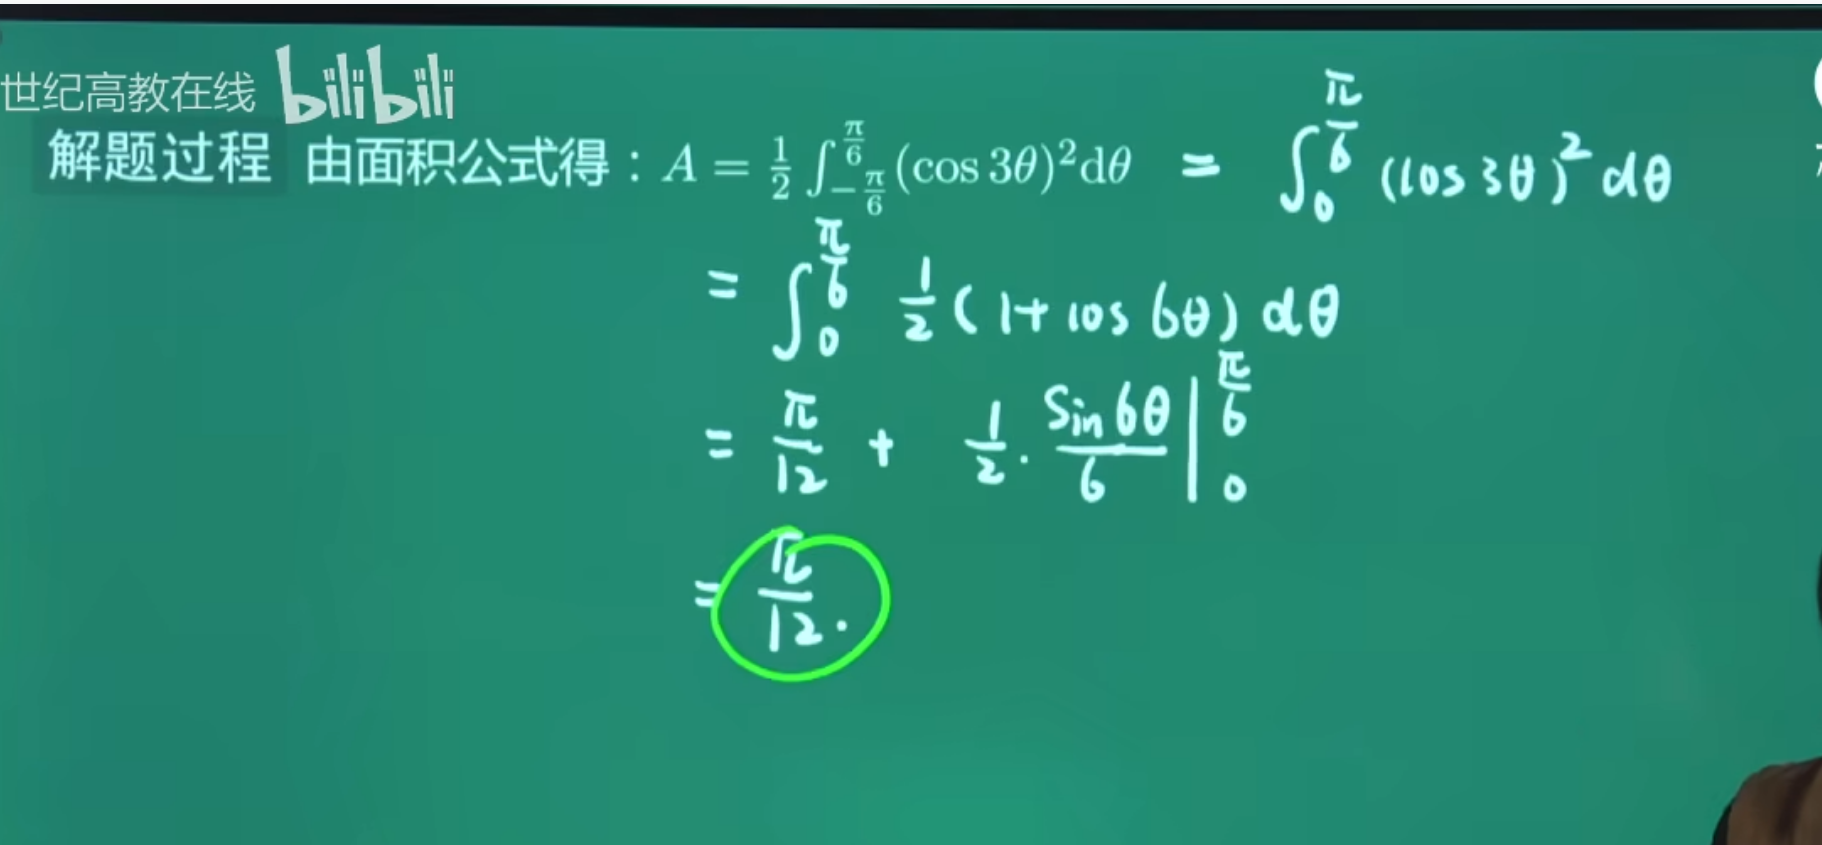 世纪高教在线 bilibili
解题过程 由面积公式得：A = \frac{1}{2} \int_{-\frac{π}{6}}^{\frac{π}{6}} (cos 3θ)^2 dθ = \int_{0}^{\frac{π}{6}} (cos 3θ)^2 dθ
= \int_{0}^{\frac{π}{6}} \frac{1}{2} (1 + cos 6θ) dθ
= \frac{π}{12} + \frac{1}{2} · \frac{sin 6θ}{6} |_{0}^{\frac{π}{6}}
= \frac{π}{12}.